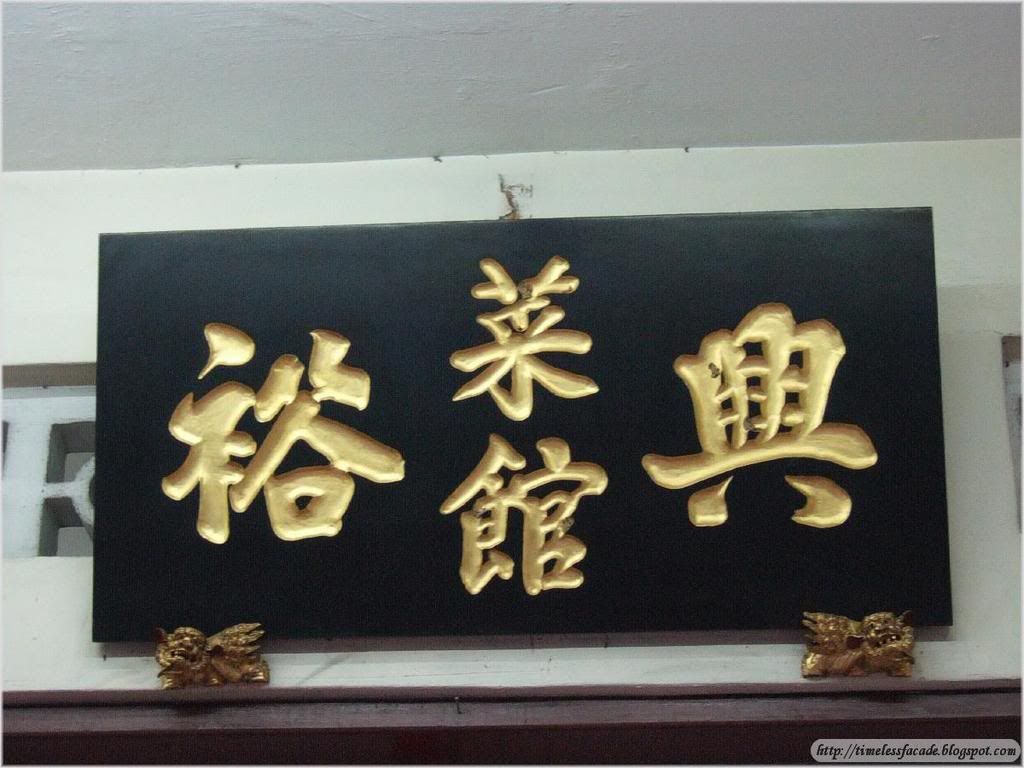 興
菜館
裕
http://timelessfacade.blogspot.com